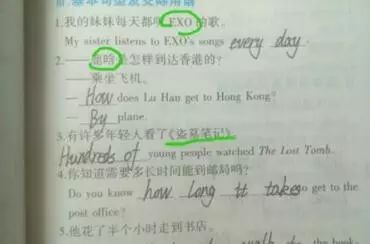 Ⅲ.基本句型及交际用语
1.我的妹妹每天都听EXO的歌。
My sister listens to EXO's songs every day.
2.——鹿晗是怎样到达香港的?
——乘坐飞机。
— How does Lu Han get to Hong Kong?
— By plane.
3.有许多年轻人看了《盗墓笔记》
Hundreds of young people watched The Lost Tomb.
4.你知道需要多长时间能到邮局吗?
Do you know how long it takes to get to the
post office?
5.他花了半个小时走到书店。
walk to the book